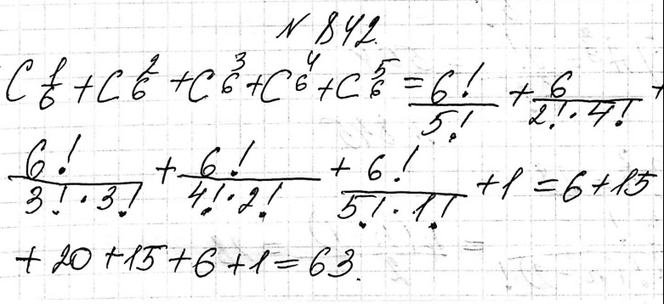 N 842.
C₆¹ + C₆² + C₆³ + C₆⁴ + C₆⁵ = 6!/5! + 6/(2!·4!) +
6!/(3!·3!) + 6!/(4!·2!) + 6!/(5!·1!) + 1 = 6 + 15
+ 20 + 15 + 6 + 1 = 63.